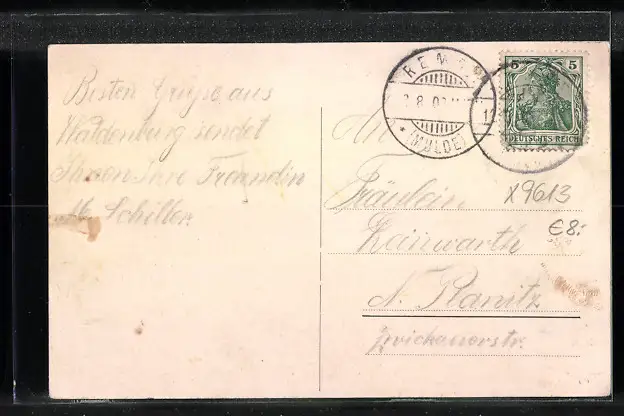 Besten Grüße aus
Waldenburg sendet
Ihnen Ihre Freundin
M. Schiller.
REMSE
8.0
* (MULDE)
5 5
DEUTSCHES REICH
An
Fräulein
Hainwarth
N. Planitz
Zwickauerstr.
X9613
€8:-